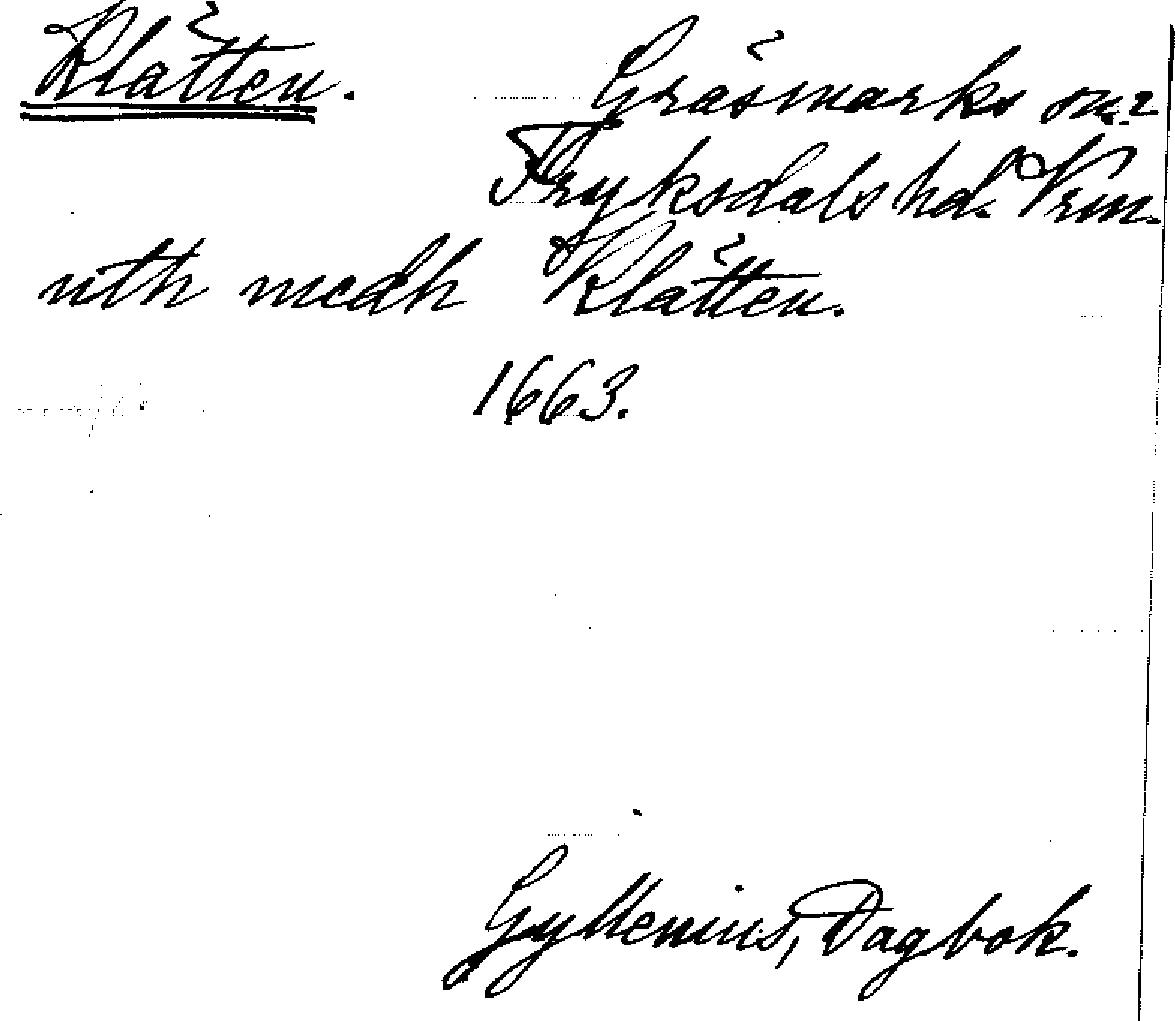 Klätten. Gräsmarks sn.?
Fryksdals hd. Vrm.
uth medh Klätten.
1663.
Gyllenius, Dagbok.